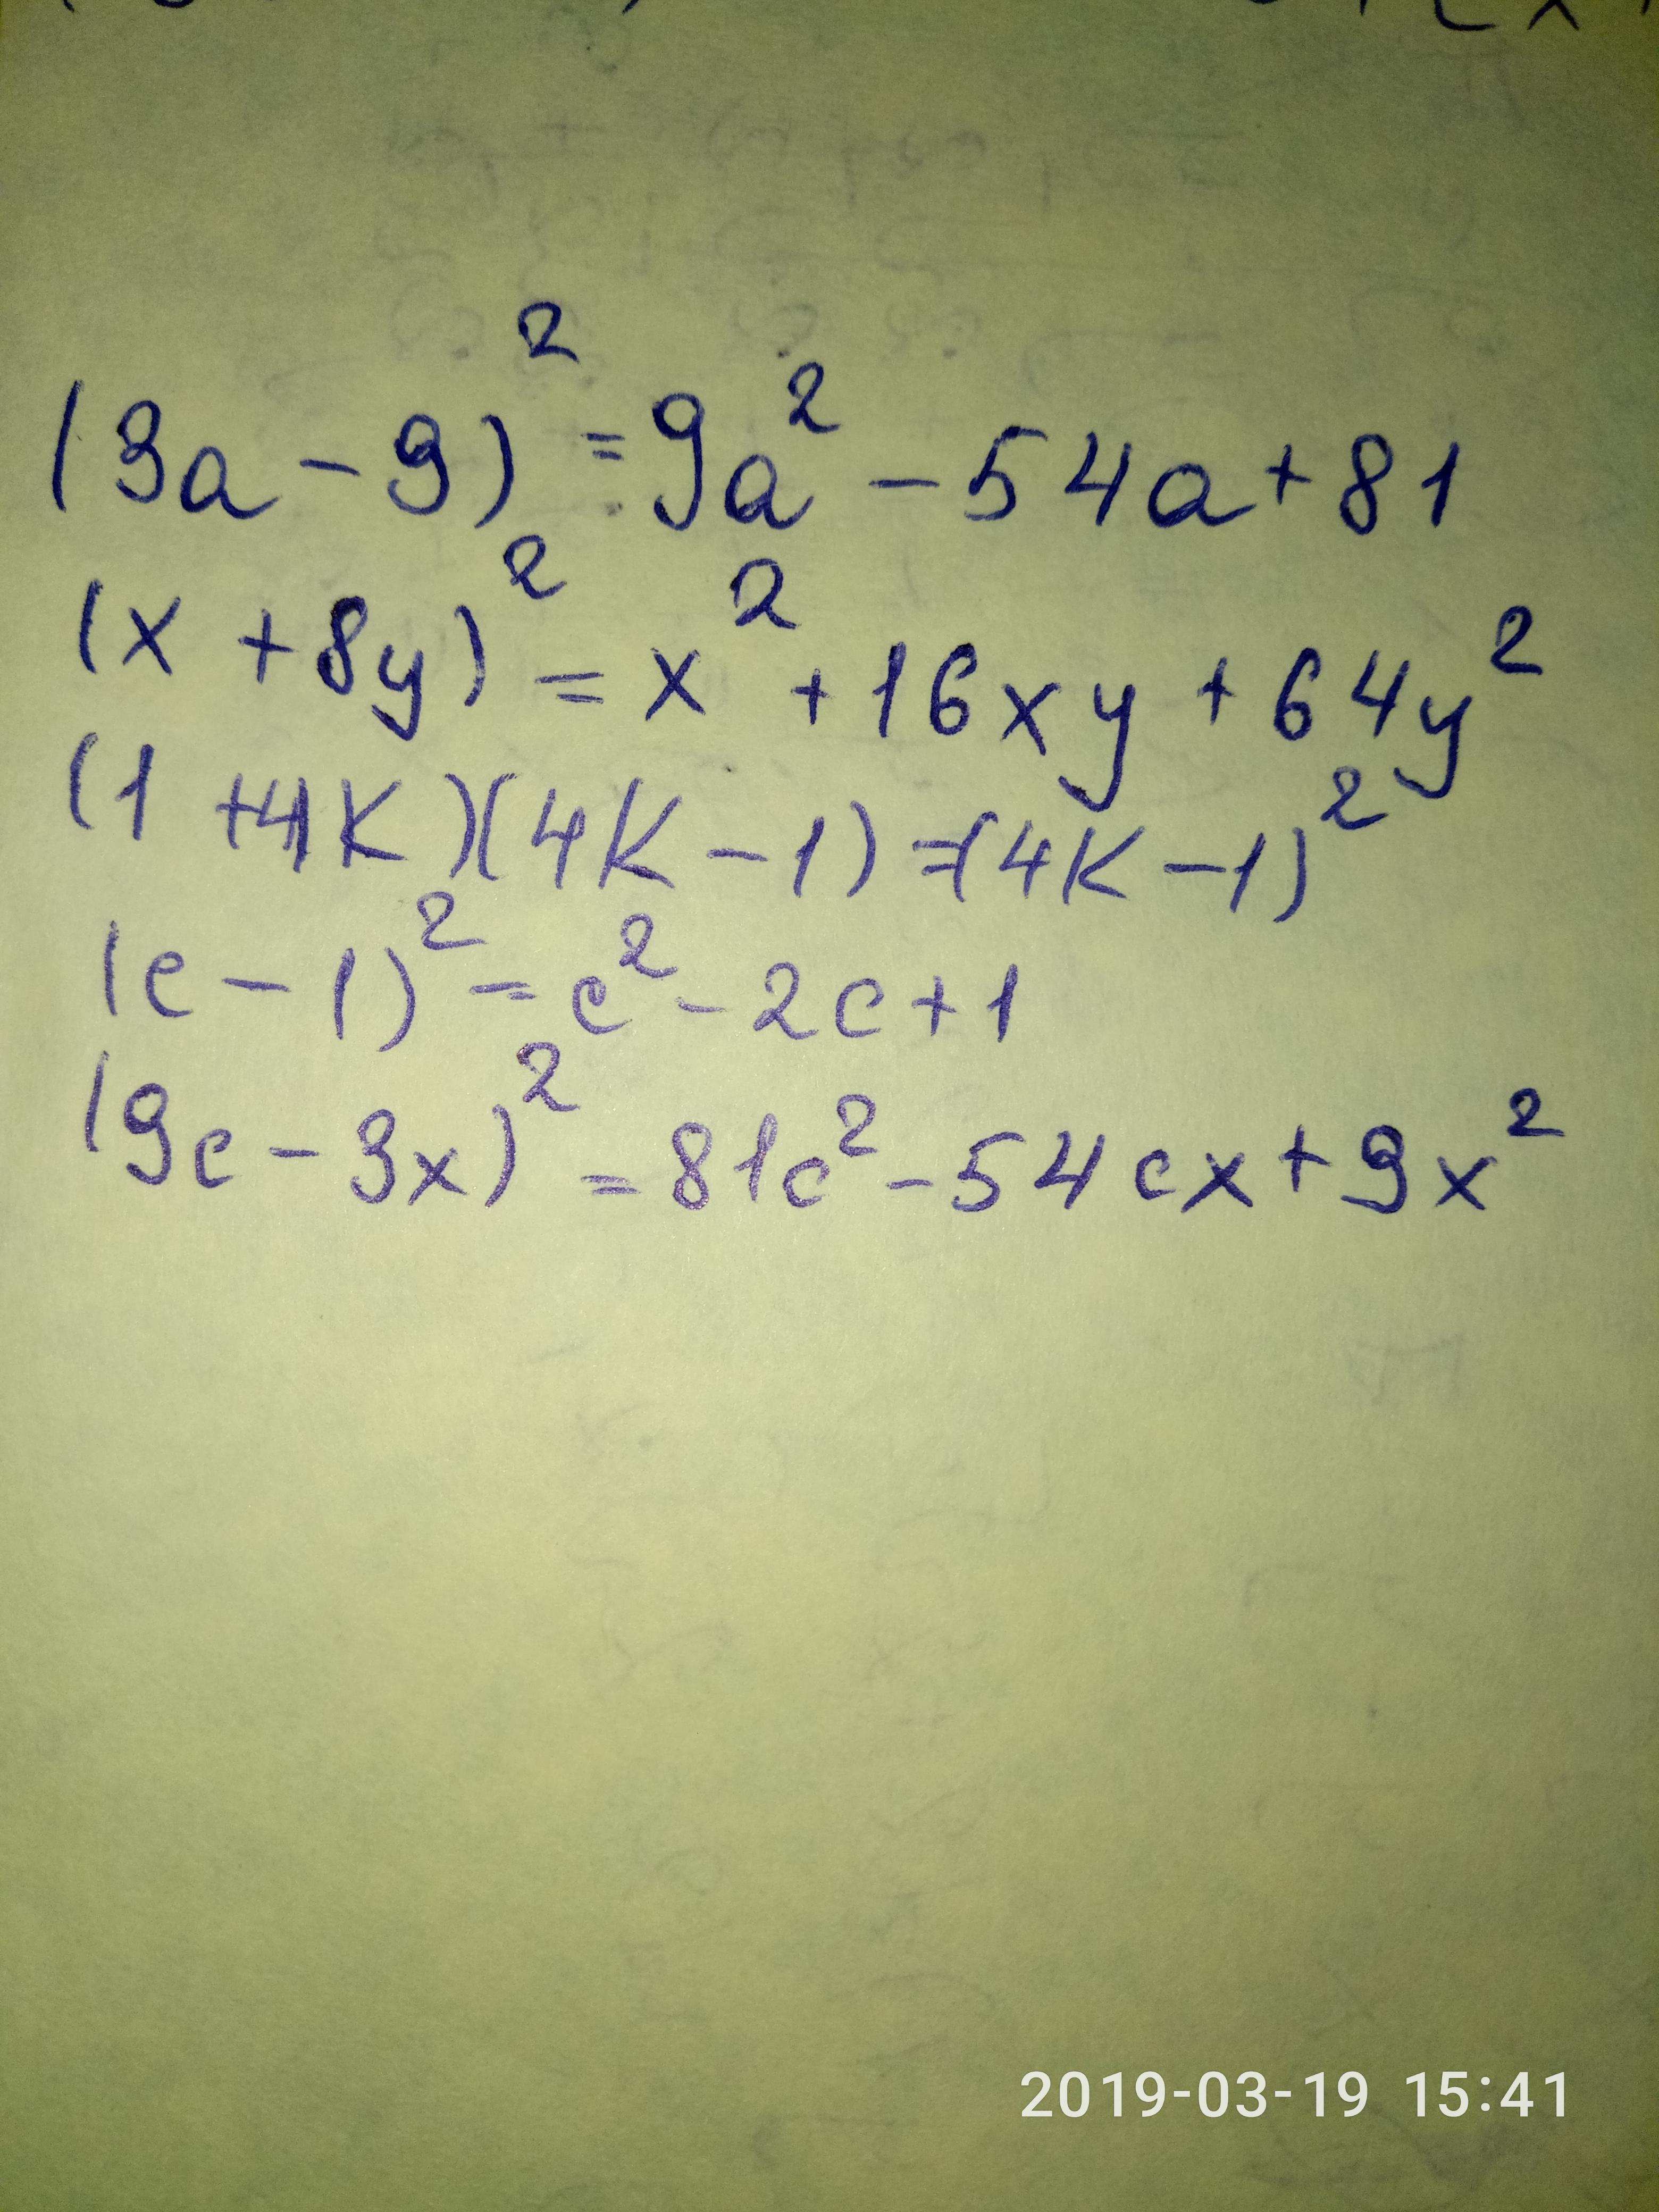 (3a - 9)² = 9a² - 54a + 81
(x + 8y)² = x² + 16xy + 64y²
(1 + 4K)(4K - 1) = (4K - 1)²
(c - 1)² = c² - 2c + 1
(9c - 3x)² = 81c² - 54cx + 9x²
2019-03-19 15:41